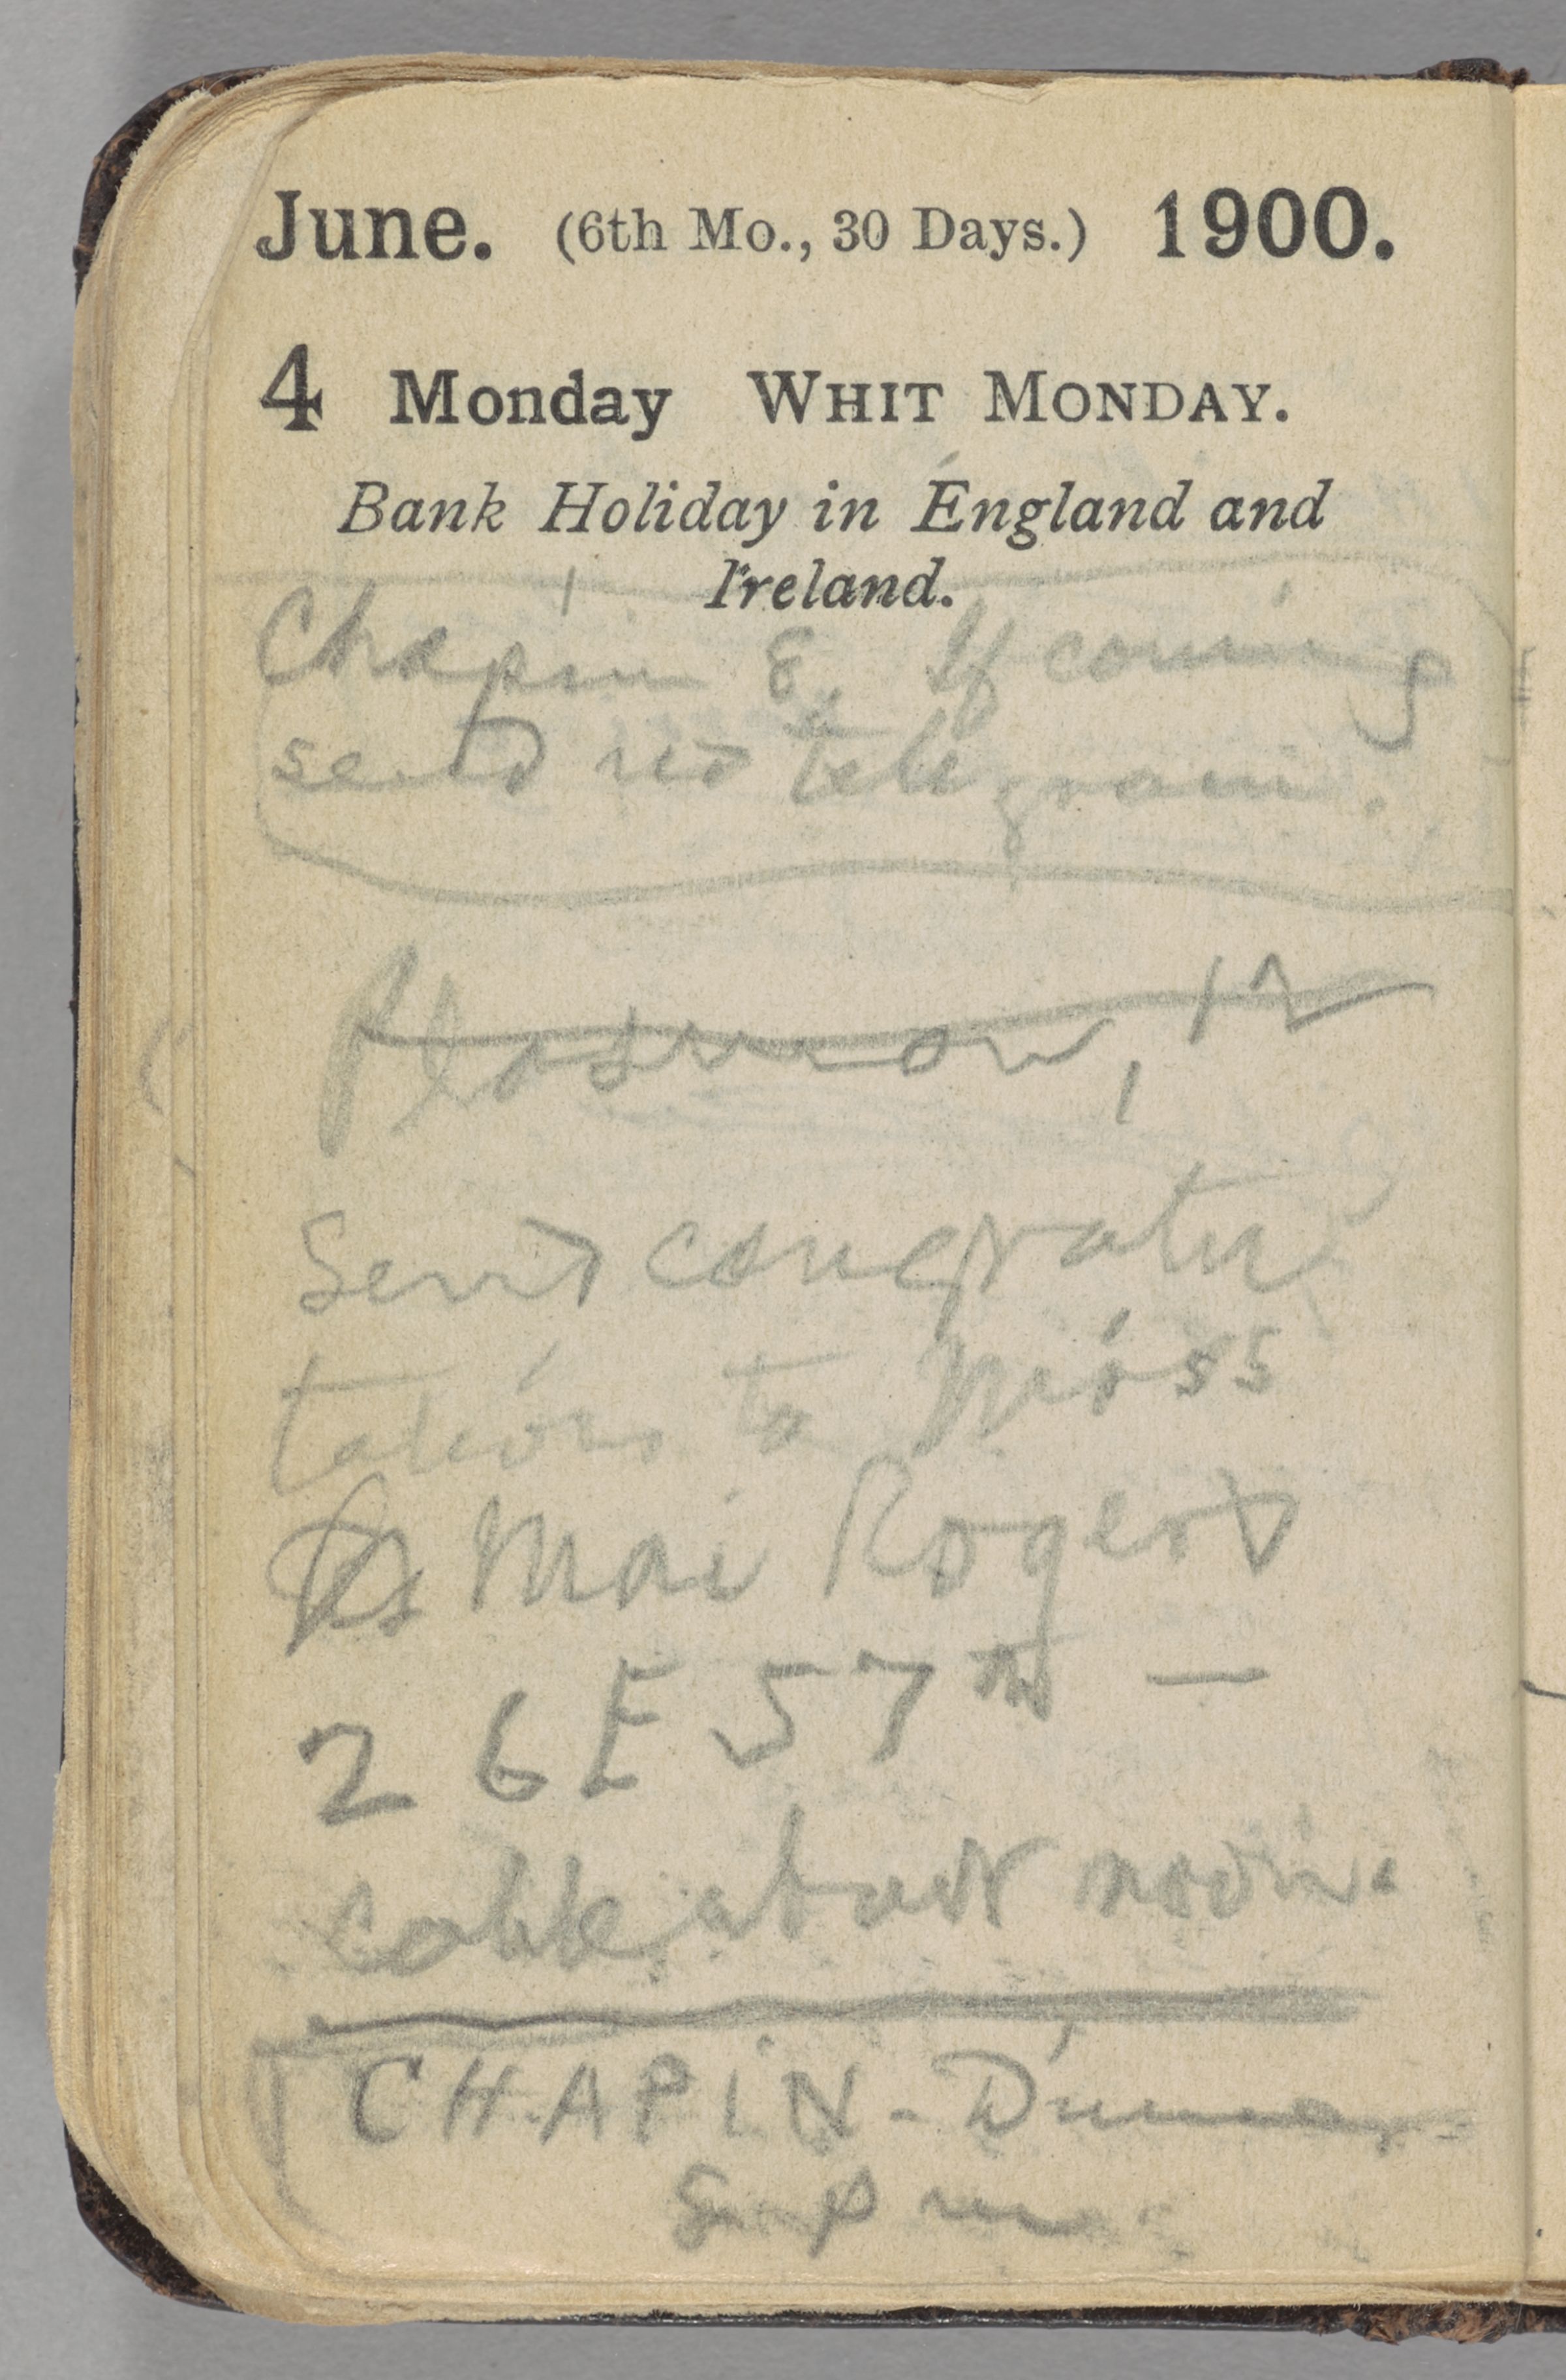 June. (6th Mo., 30 Days.) 1900.
4 Monday WHIT MONDAY.
Bank Holiday in England and
Ireland.
Chapin 8. If coming
send no telegram.
Plasmon, 12
Send congratu
lations to Miss
Mai Rogers
26 E 57th —
cable about noon.
CHAPIN - Dinner